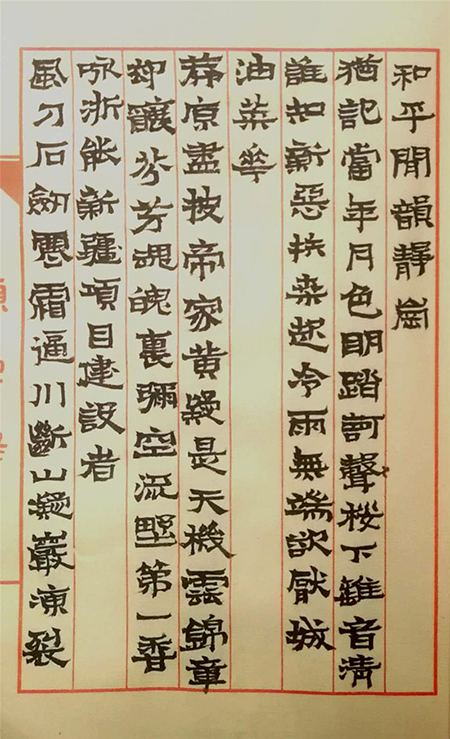 和平聞韻靜
猶記當年月色明踏聲下音清
誰知新惡扶桑起冷雨無端欲厭城
油菜華
莽原盡披帝家黃疑是天機雲錦章
却釀芬芳魂魄裏彌空流野第一香
咏浙能新疆項目建設者
風刀石劍霜逼川斷山凝巖凍裂